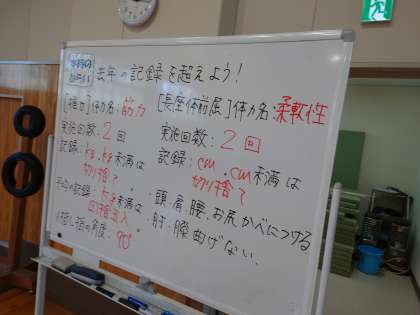 本時の
ねらい
去年の記録を超えよう！
[握力]体力名：筋力
実施回数：2回
記録：kg.kg未満は
切り捨て
平均の記録：kg未満は
四捨五入
人指し指の角度：90°
[長座体前屈]体力名：柔軟性
実施回数：2回
記録：cm.cm未満は
切り捨て
・頭、肩、腰、お尻かべにつける
・肘、膝曲げない。